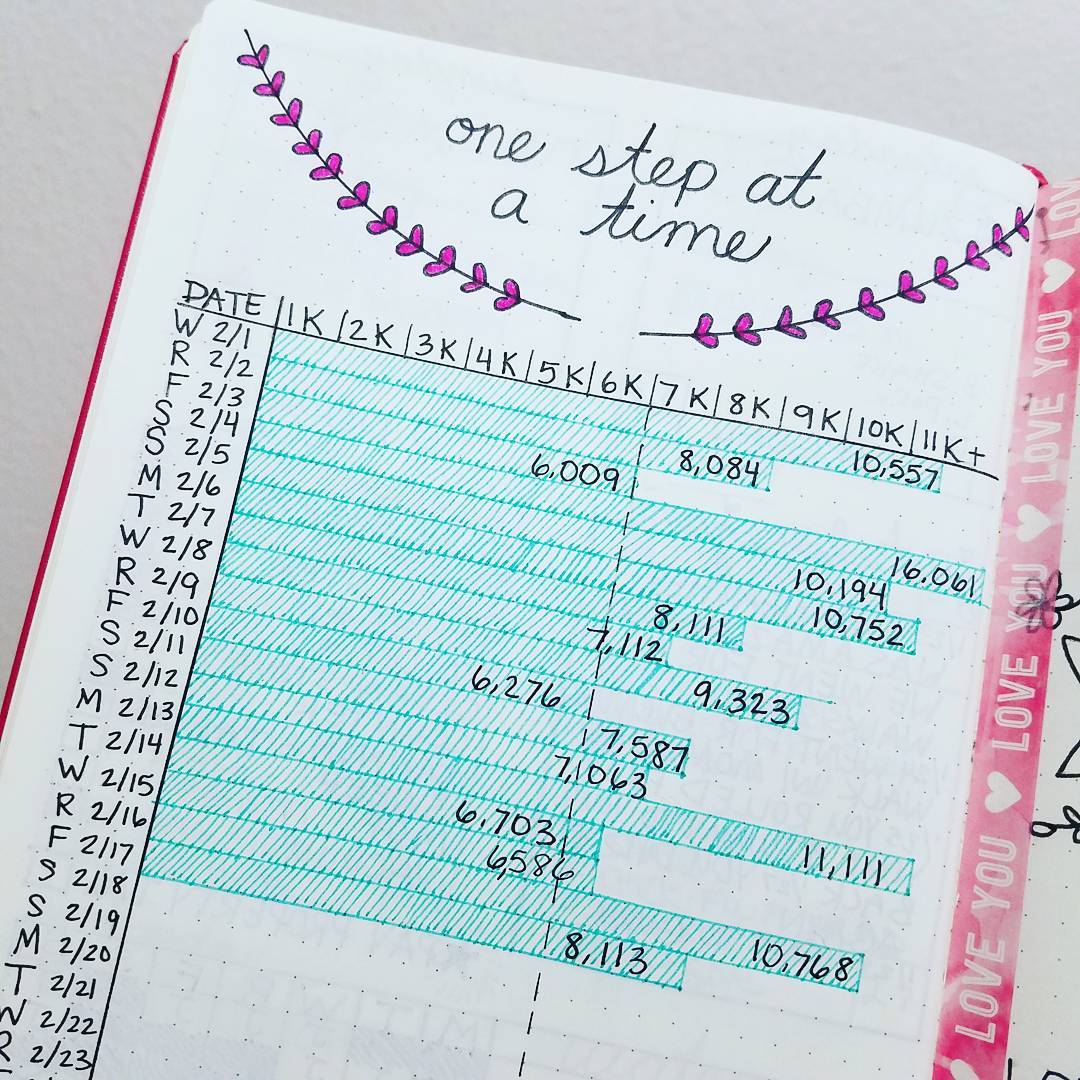 one step at
a time
DATE 1K 2K 3K 4K 5K 6K 7K 8K 9K 10K 11K+
W 2/1 10,557
R 2/2 8,084
F 2/3 6,009
S 2/4 16,061
S 2/5 10,194
M 2/6 10,752
T 2/7 8,111
W 2/8 7,112
R 2/9 9,323
F 2/10 6,276
S 2/11 7,587
S 2/12 7,063
M 2/13 11,111
T 2/14 6,703
W 2/15 6,586
R 2/16 10,768
F 2/17 8,113
S 2/18
S 2/19
M 2/20
T 2/21
W 2/22
R 2/23
LOVE YOU LOVE YOU LOVE YOU LOVE YOU